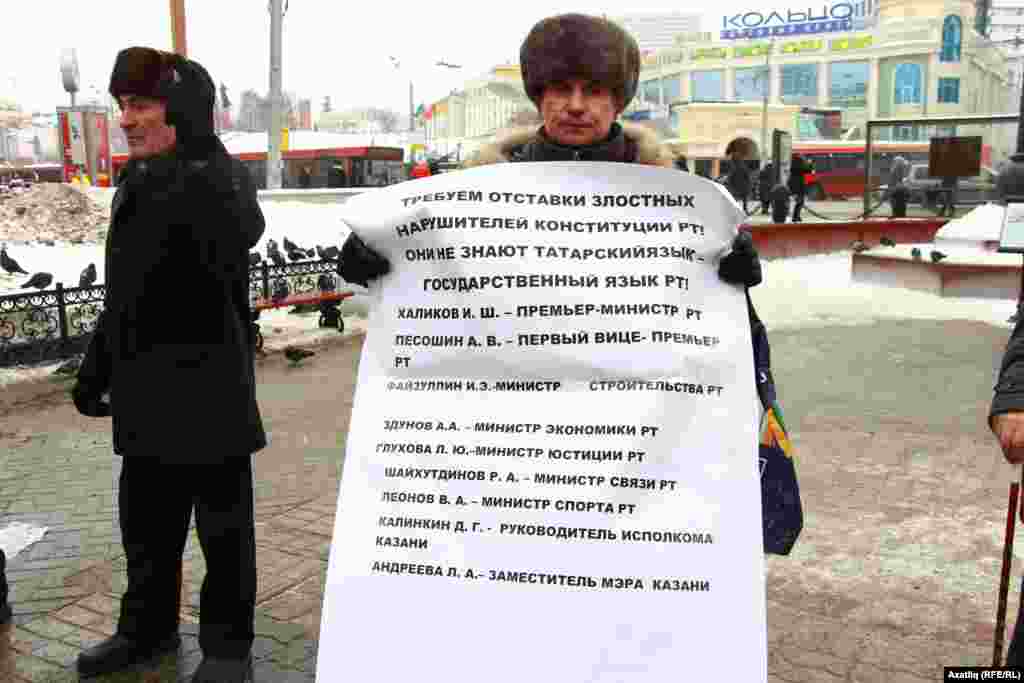 КОЛЬЦО
ТРЕБУЕМ ОТСТАВКИ ЗЛОСТНЫХ
НАРУШИТЕЛЕЙ КОНСТИТУЦИИ РТ!
ОНИ НЕ ЗНАЮТ ТАТАРСКИЙЯЗЫК –
ГОСУДАРСТВЕННЫЙ ЯЗЫК РТ!
ХАЛИКОВ И. Ш. – ПРЕМЬЕР-МИНИСТР РТ
ПЕСОШИН А. В. – ПЕРВЫЙ ВИЦЕ- ПРЕМЬЕР
РТ
ФАЙЗУЛЛИН И.Э.-МИНИСТР СТРОИТЕЛЬСТВА РТ
ЗДУНОВ А.А. – МИНИСТР ЭКОНОМИКИ РТ
ГЛУХОВА Л. Ю.-МИНИСТР ЮСТИЦИИ РТ
ШАЙХУТДИНОВ Р. А. – МИНИСТР СВЯЗИ РТ
ЛЕОНОВ В. А. – МИНИСТР СПОРТА РТ
КАЛИНКИН Д. Г. - РУКОВОДИТЕЛЬ ИСПОЛКОМА
КАЗАНИ
АНДРЕЕВА Л. А.– ЗАМЕСТИТЕЛЬ МЭРА КАЗАНИ
Azatliq (RFE/RL)